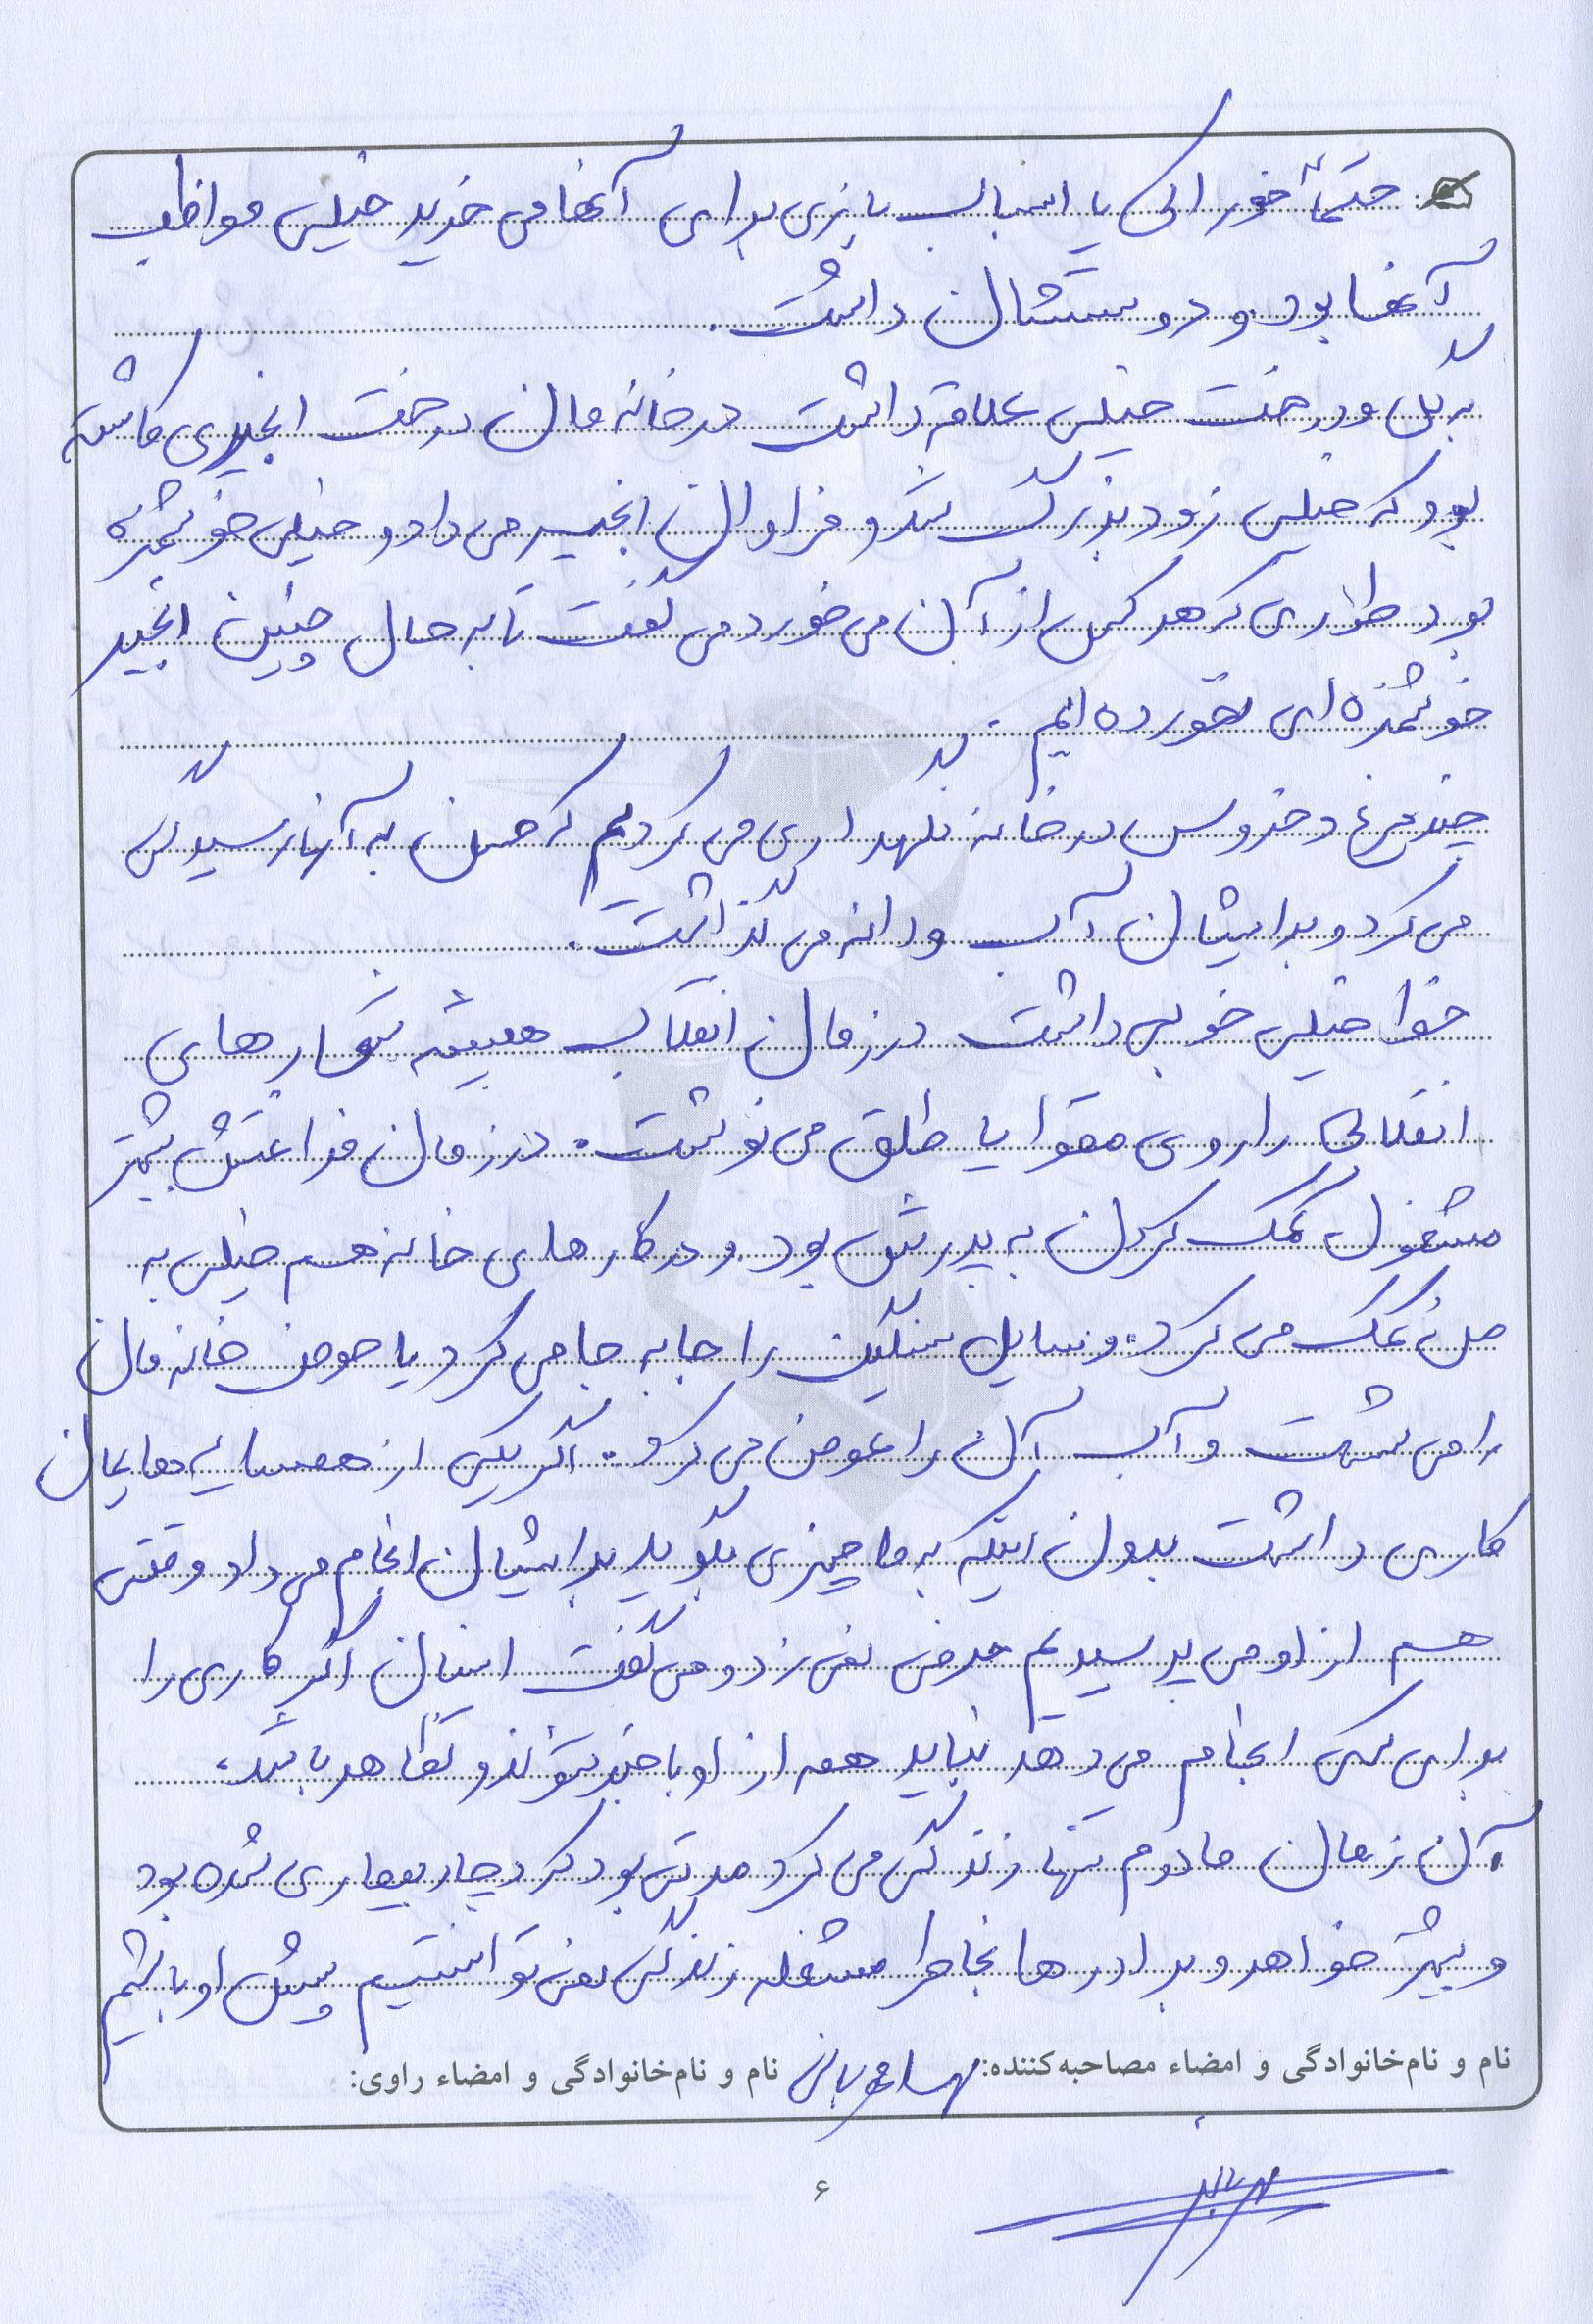 حتماً خوراکی یا اسباب بازی برای آنها می خرید خیلی مواظب
آنها بود و دوستشان داشت.
به گل و درخت خیلی علاقه داشت در خانه مان درخت انجیری کاشته
بود که خیلی زود بزرگ شد و فراوان انجیر می داد و خیلی خوشمزه
بود طوری که هر کس از آن می خورد می گفت تا به حال چنین انجیر
خوشمزه ای نخورده ایم.
چند مرغ و خروس در خانه نگهداری می کردیم که حسن به آنها رسیدگی
می کرد و برایشان آب و دانه می گذاشت.
خط خیلی خوبی داشت در زمان انقلاب همیشه شعارهای
انقلابی را روی مقوا یا طلق می نوشت. در زمان فراغتش بیشتر
مشغول کمک کردن به پدرش بود و در کارهای خانه هم خیلی به
من کمک می کرد. وسایل سنگین را جا به جا می کرد یا حوض خانه مان
را می شست و آب آن را عوض می کرد. اگر یکی از همسایه هایمان
کاری داشت بدون اینکه به ما چیزی بگوید برایشان انجام می داد وقتی
هم از او می پرسیدیم حرفی نمی زد و می گفت انسان اگر کاری را
برای کسی انجام می دهد نباید همه از او باخبر شوند و تظاهر باشد.
آن زمان مادرم تنها زندگی می کرد مدتی بود که دچار بیماری شده بود
و بیشتر خواهر و برادرها بخاطر مشغله زندگی نمی توانستیم پیش او باشیم
نام و نام‌خانوادگی و امضاء مصاحبه‌کننده: نام و نام‌خانوادگی و امضاء راوی:
۶